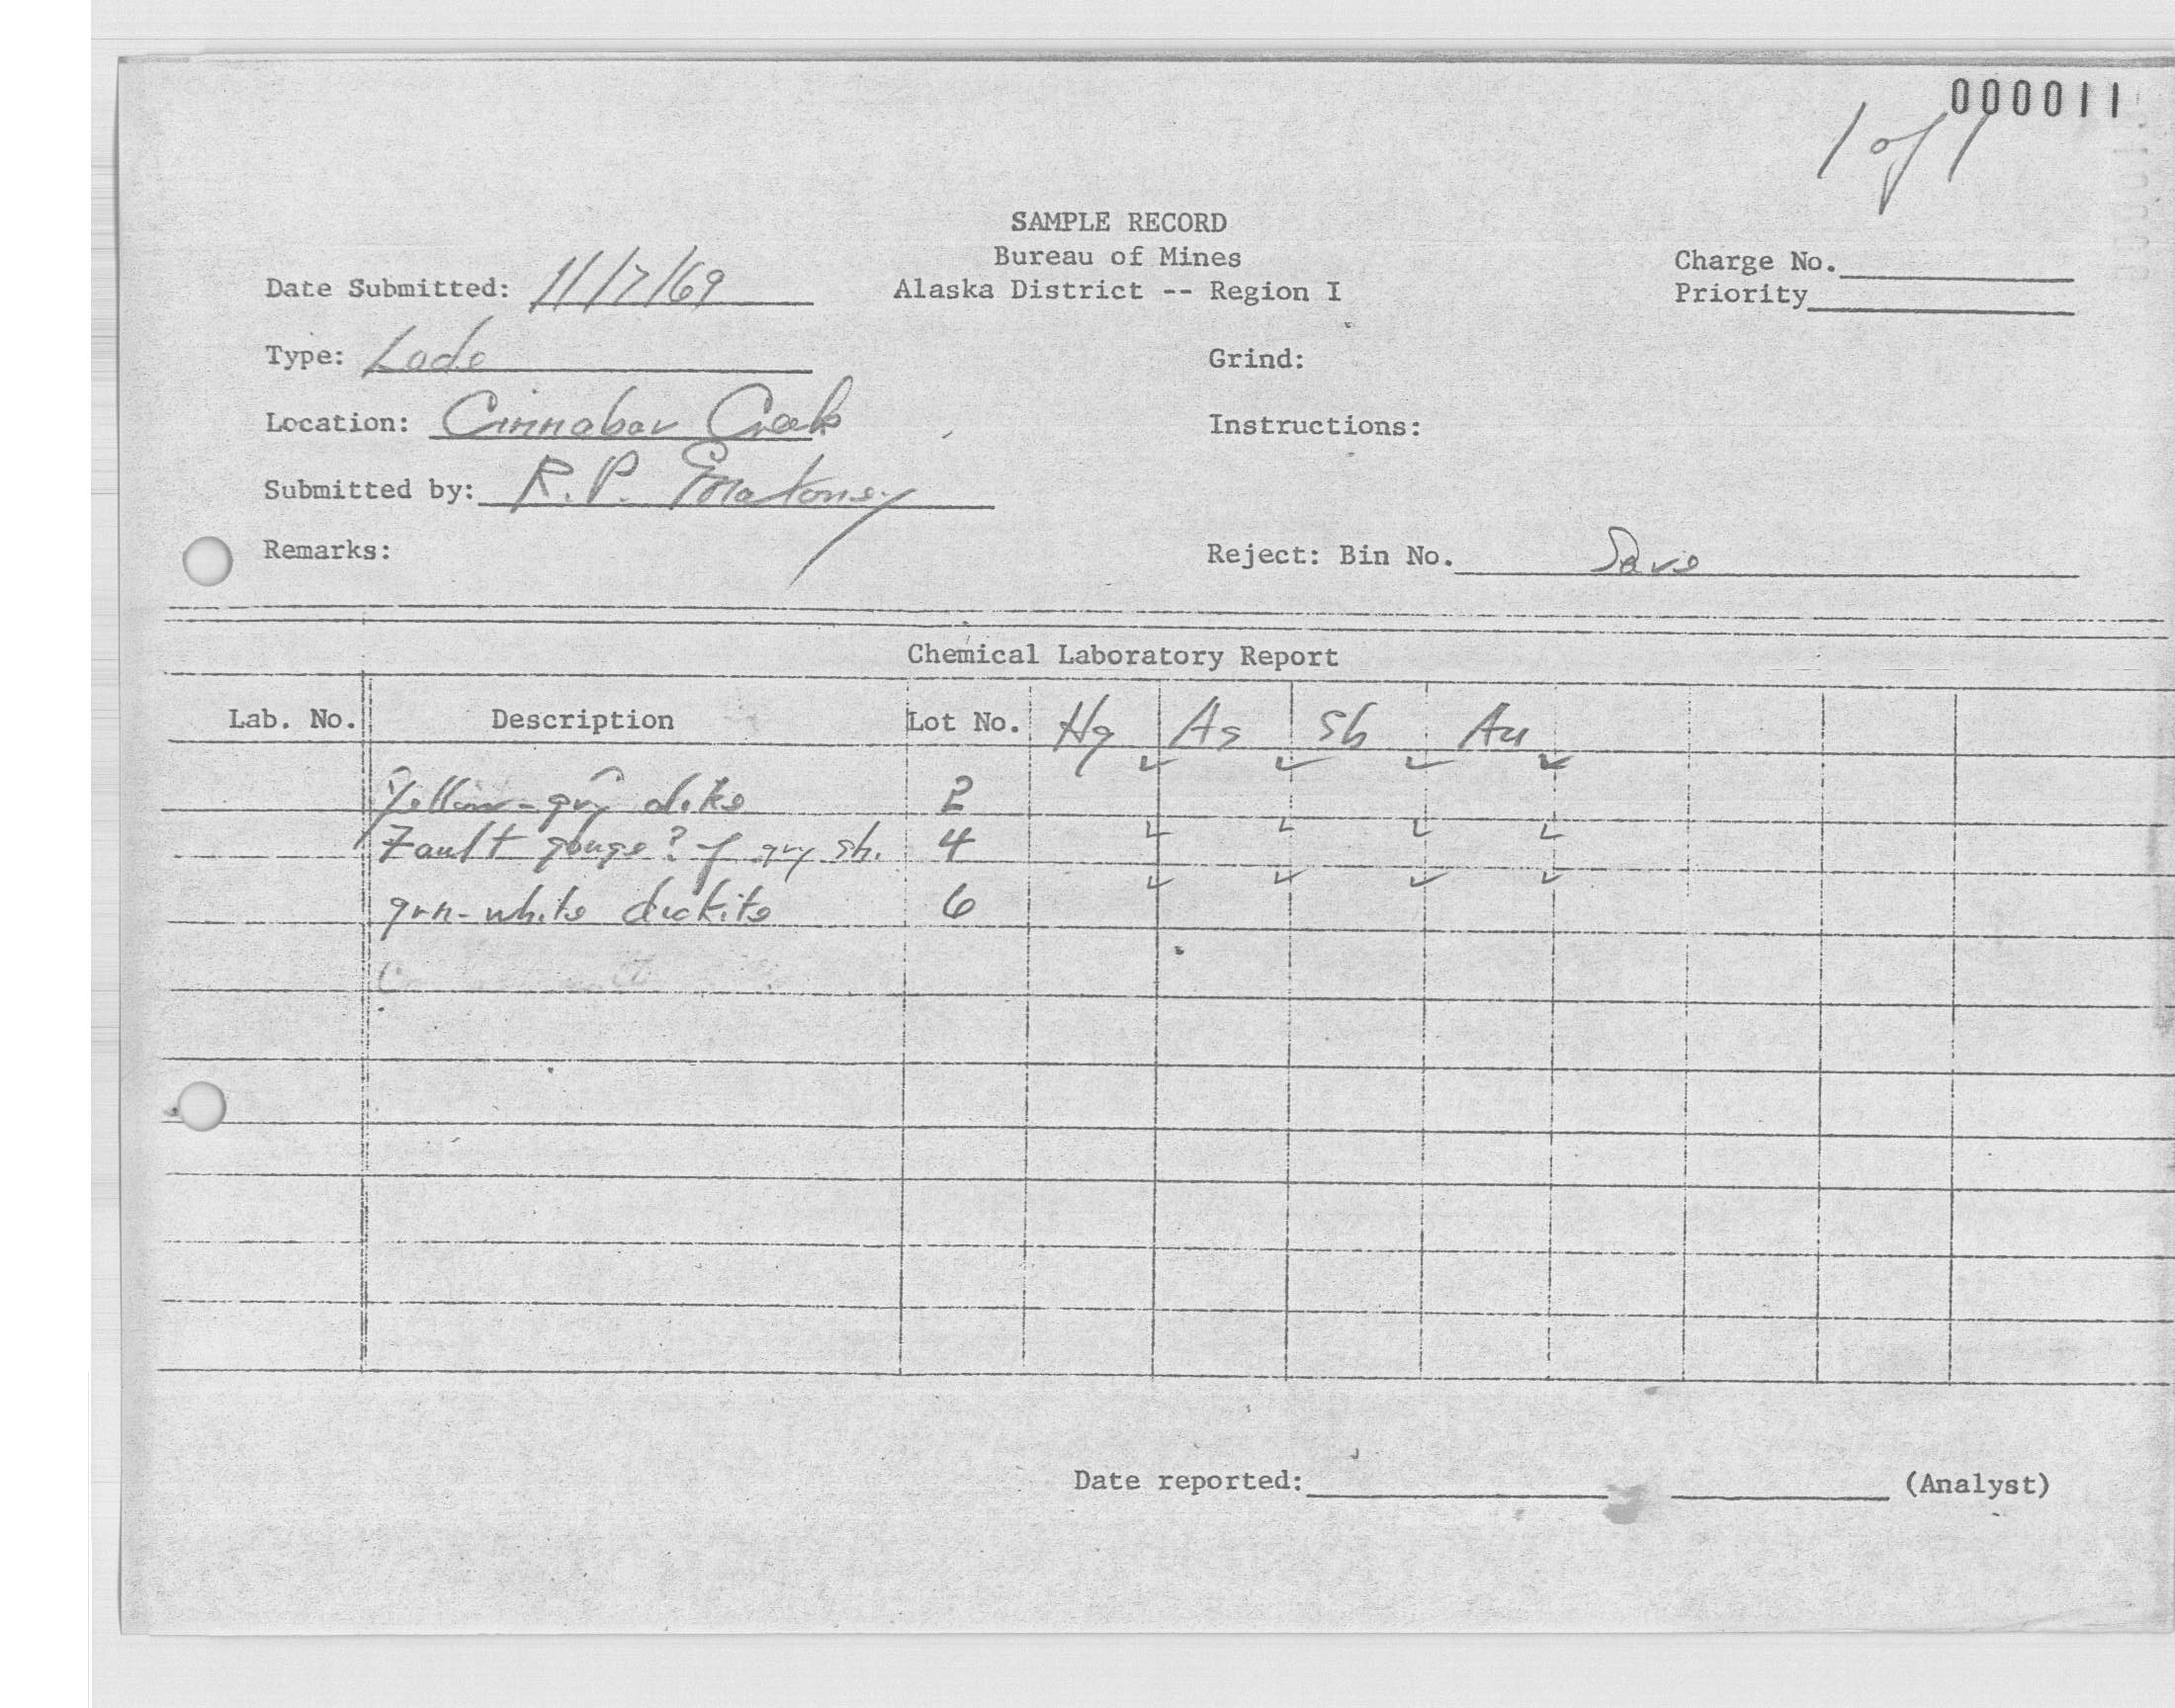 000011
1 of 1
SAMPLE RECORD
Bureau of Mines
Alaska District -- Region I
Charge No.
Priority
Date Submitted: 11/7/69
Type: Lode
Grind:
Location: Cinnabar Creek
Instructions:
Submitted by: R.P. Maloney
Remarks:
Reject: Bin No. Save
Chemical Laboratory Report
Lab. No. Description Lot No. Hg As Sb Au
Yellow-gry dike 2 ✓ ✓ ✓ ✓
Fault gouge? of gry sh. 4 ✓ ✓ ✓ ✓
grn-white dickite 6 ✓ ✓ ✓ ✓
Date reported: (Analyst)